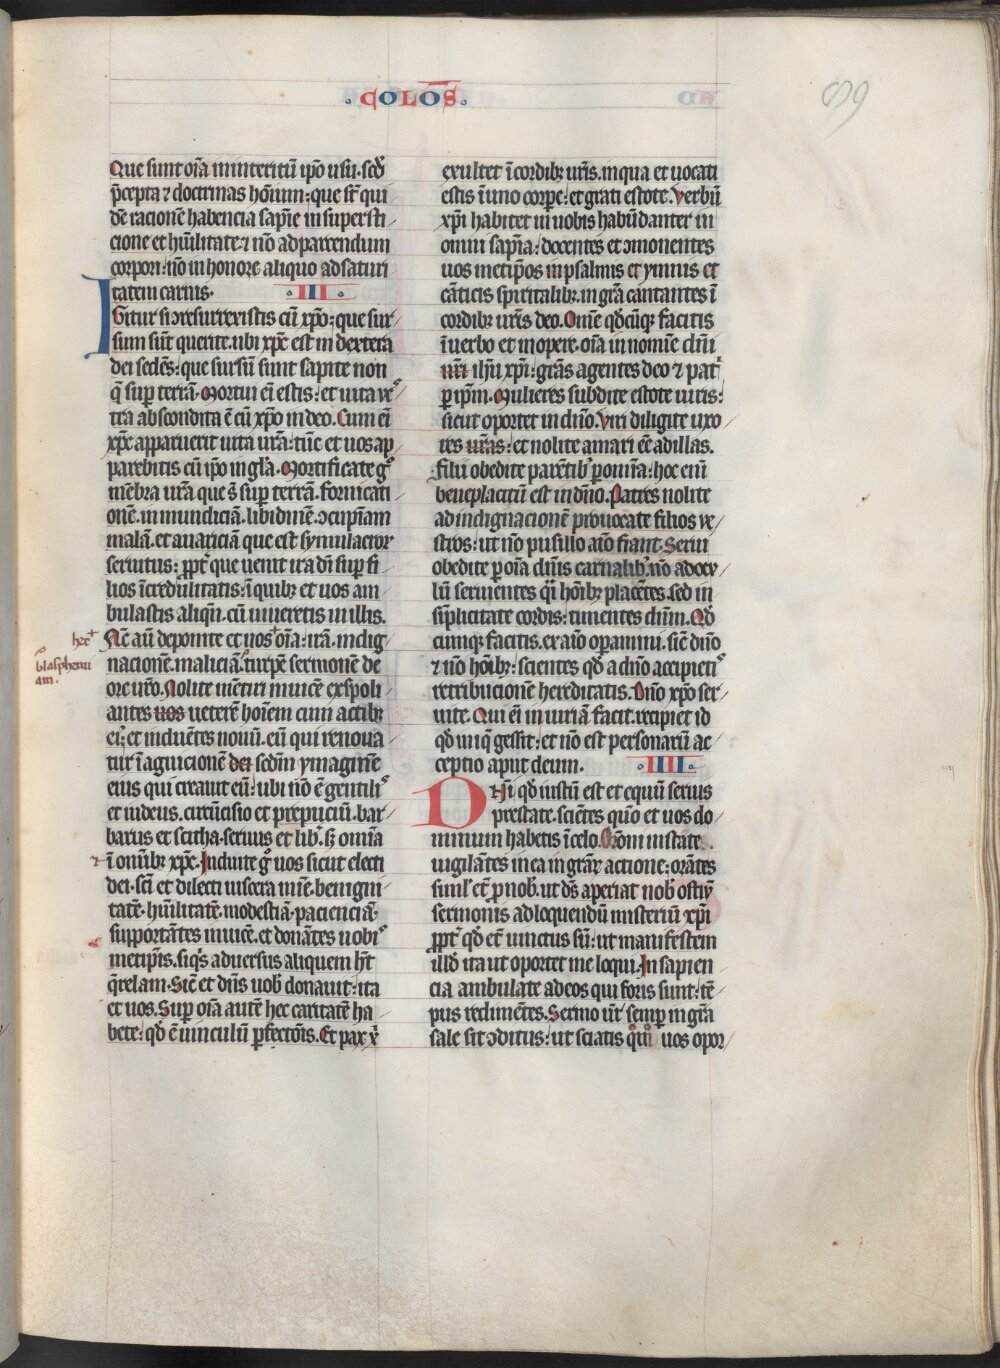 COLOS̄
699
Que sunt oīa in interitū ip̄o usu. sed̄
p̄cepta ⁊ doctrinas hōinum: que sūt qui
dē racionē habencia sapīe in supersti
cione et hūilitate. ⁊ nō ad parcendum
corpori: nō in honore aliquo ad saturi
tatem carnis. III
Igitur si ꝯresurrexistis cū xp̄o: que sur
sum sūt querite. ubi xp̄c est in dextera
dei sedēs: que sursū sunt sapite non
q̄ suꝑ terrā. Mortui eī estis: et uita ve
tra abscondita ē cū xp̄o in deo. Cum eī
xp̄c apparuerit uita ur̄a: tūc et uos ap
parebitis cū ip̄o in gl̄a. Mortificate gͦ
mēbra ur̄a que s̄t suꝑ terrā. fornicati
onē. in mundiciā. libidinē. ꝯcupīam
malā. et auariciā que est symulacror
seruitus: ꝓpt̄ que uenit ira dī suꝑ fi
lios īcredulitatis: ī quibꝫ et uos am
bulastis aliqn̄. cū uiueretis in illis.
Nūc aū deponite et uos oīa: irā. indig
hec
nacionē. maliciā. turpē sermonē de
blasphemi
am.
ore ur̄o. Nolite mētiri inuicē exspoli
antes uos ueterē hoīem cum actibꝫ
eiꝰ: et induētes nouū. eū qui renoua
tur ī agnicionē dei sedm̄ ymaginē
eius qui creauit eū: ubi nō ē gentilis
et iudeus. circūcisio et prepuciū. bar
barus et scitha. seruus et lib̄. sꝫ omīa
⁊ ī omībꝫ xp̄c. Induite gͦ uos sicut electi
dei. sc̄i et dilecti uiscera mīe. benigni
tatē. hūilitatē. modestiā. pacienciā.
supportātes inuicē. et donātes uobis
metip̄is. siq̄s aduersus aliquem h̄t
q̄relam. Sic̄ et dn̄s uob̄ donauit: ita
et uos. Suꝑ oīa autē hec caritatē ha
bete: qd̄ ē uinculū ꝑfectōis. Et pax xp̄i
exultet ī cordibꝫ ur̄is. in qua et uocati
estis ī uno corꝑe: et grati estote. Verbū
xp̄i habitet in uobis habūdanter in
omni sapīa: docentes et ꝯmonentes
uos metip̄os in psalmis et ymnis et
cāticis spiritalibꝫ. in gr̄a cantantes ī
cordibꝫ ur̄is deo. Om̄e qd̄cūqꝫ facitis
ī uerbo et in opere. oīa in nomīe dn̄i
nr̄i ih̄u xp̄i: gr̄as agentes deo ⁊ patri
ꝑ ip̄m. Mulieres subdite estote uiris:
sicut oportet in dn̄o. Viri diligite uxo
res ur̄as: et nolite amari eē ad illas.
Filii obedite parētibꝫ ꝑ omīa: hoc enī
beneplacitū est in dn̄o. Patres nolite
ad indignacionē prouocate filios ve
stros: ut nō pusillo aīo fiant. Serui
obedite ꝑ oīa dn̄is carnalibꝫ. nō ad ocu
lū seruientes q̄i hōibꝫ placētes. sed in
sīplicitate cordis: timentes dn̄m. Qd̄
cumqꝫ facitis. ex aīo opamini. sic̄ dn̄o
⁊ nō hōibꝫ: scientes qd̄ a dn̄o accipietis
retribucionē hereditatis. Dn̄o xp̄o ser
uite. Qui eī iniuriā facit. recipiet id
qd̄ iniq̄ gessit: et nō est personarū ac
ceptio aput deum. IIII
Dn̄i qd̄ iustū est et equū seruis
prestate. sciētes qm̄o et uos do
minum habetis ī celo. Orōni instate.
uigilātes in ea in grār̄ actione: orātes
simul et̄ ꝑ nob̄. ut ds̄ aperiat nob̄ ostiū
sermonis ad loquendū misteriū xp̄i
ꝓpt̄ qd̄ et̄ uinctus sū: ut manifestem
illd̄ ita ut oportet me loqui. In sapien
cia ambulate ad eos qui foris sunt: tē
pus redimētes. Sermo ur̄ semꝑ in gr̄a
sale sit ꝯditus: ut sciatis qͦm̄ uos opor